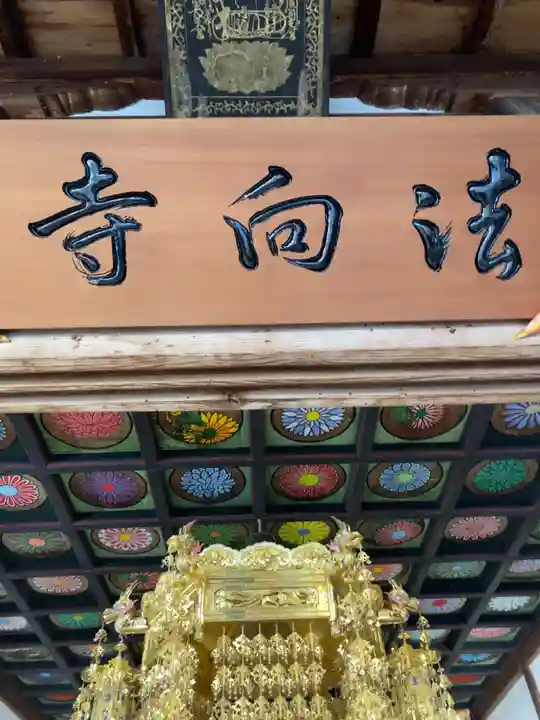 法向寺